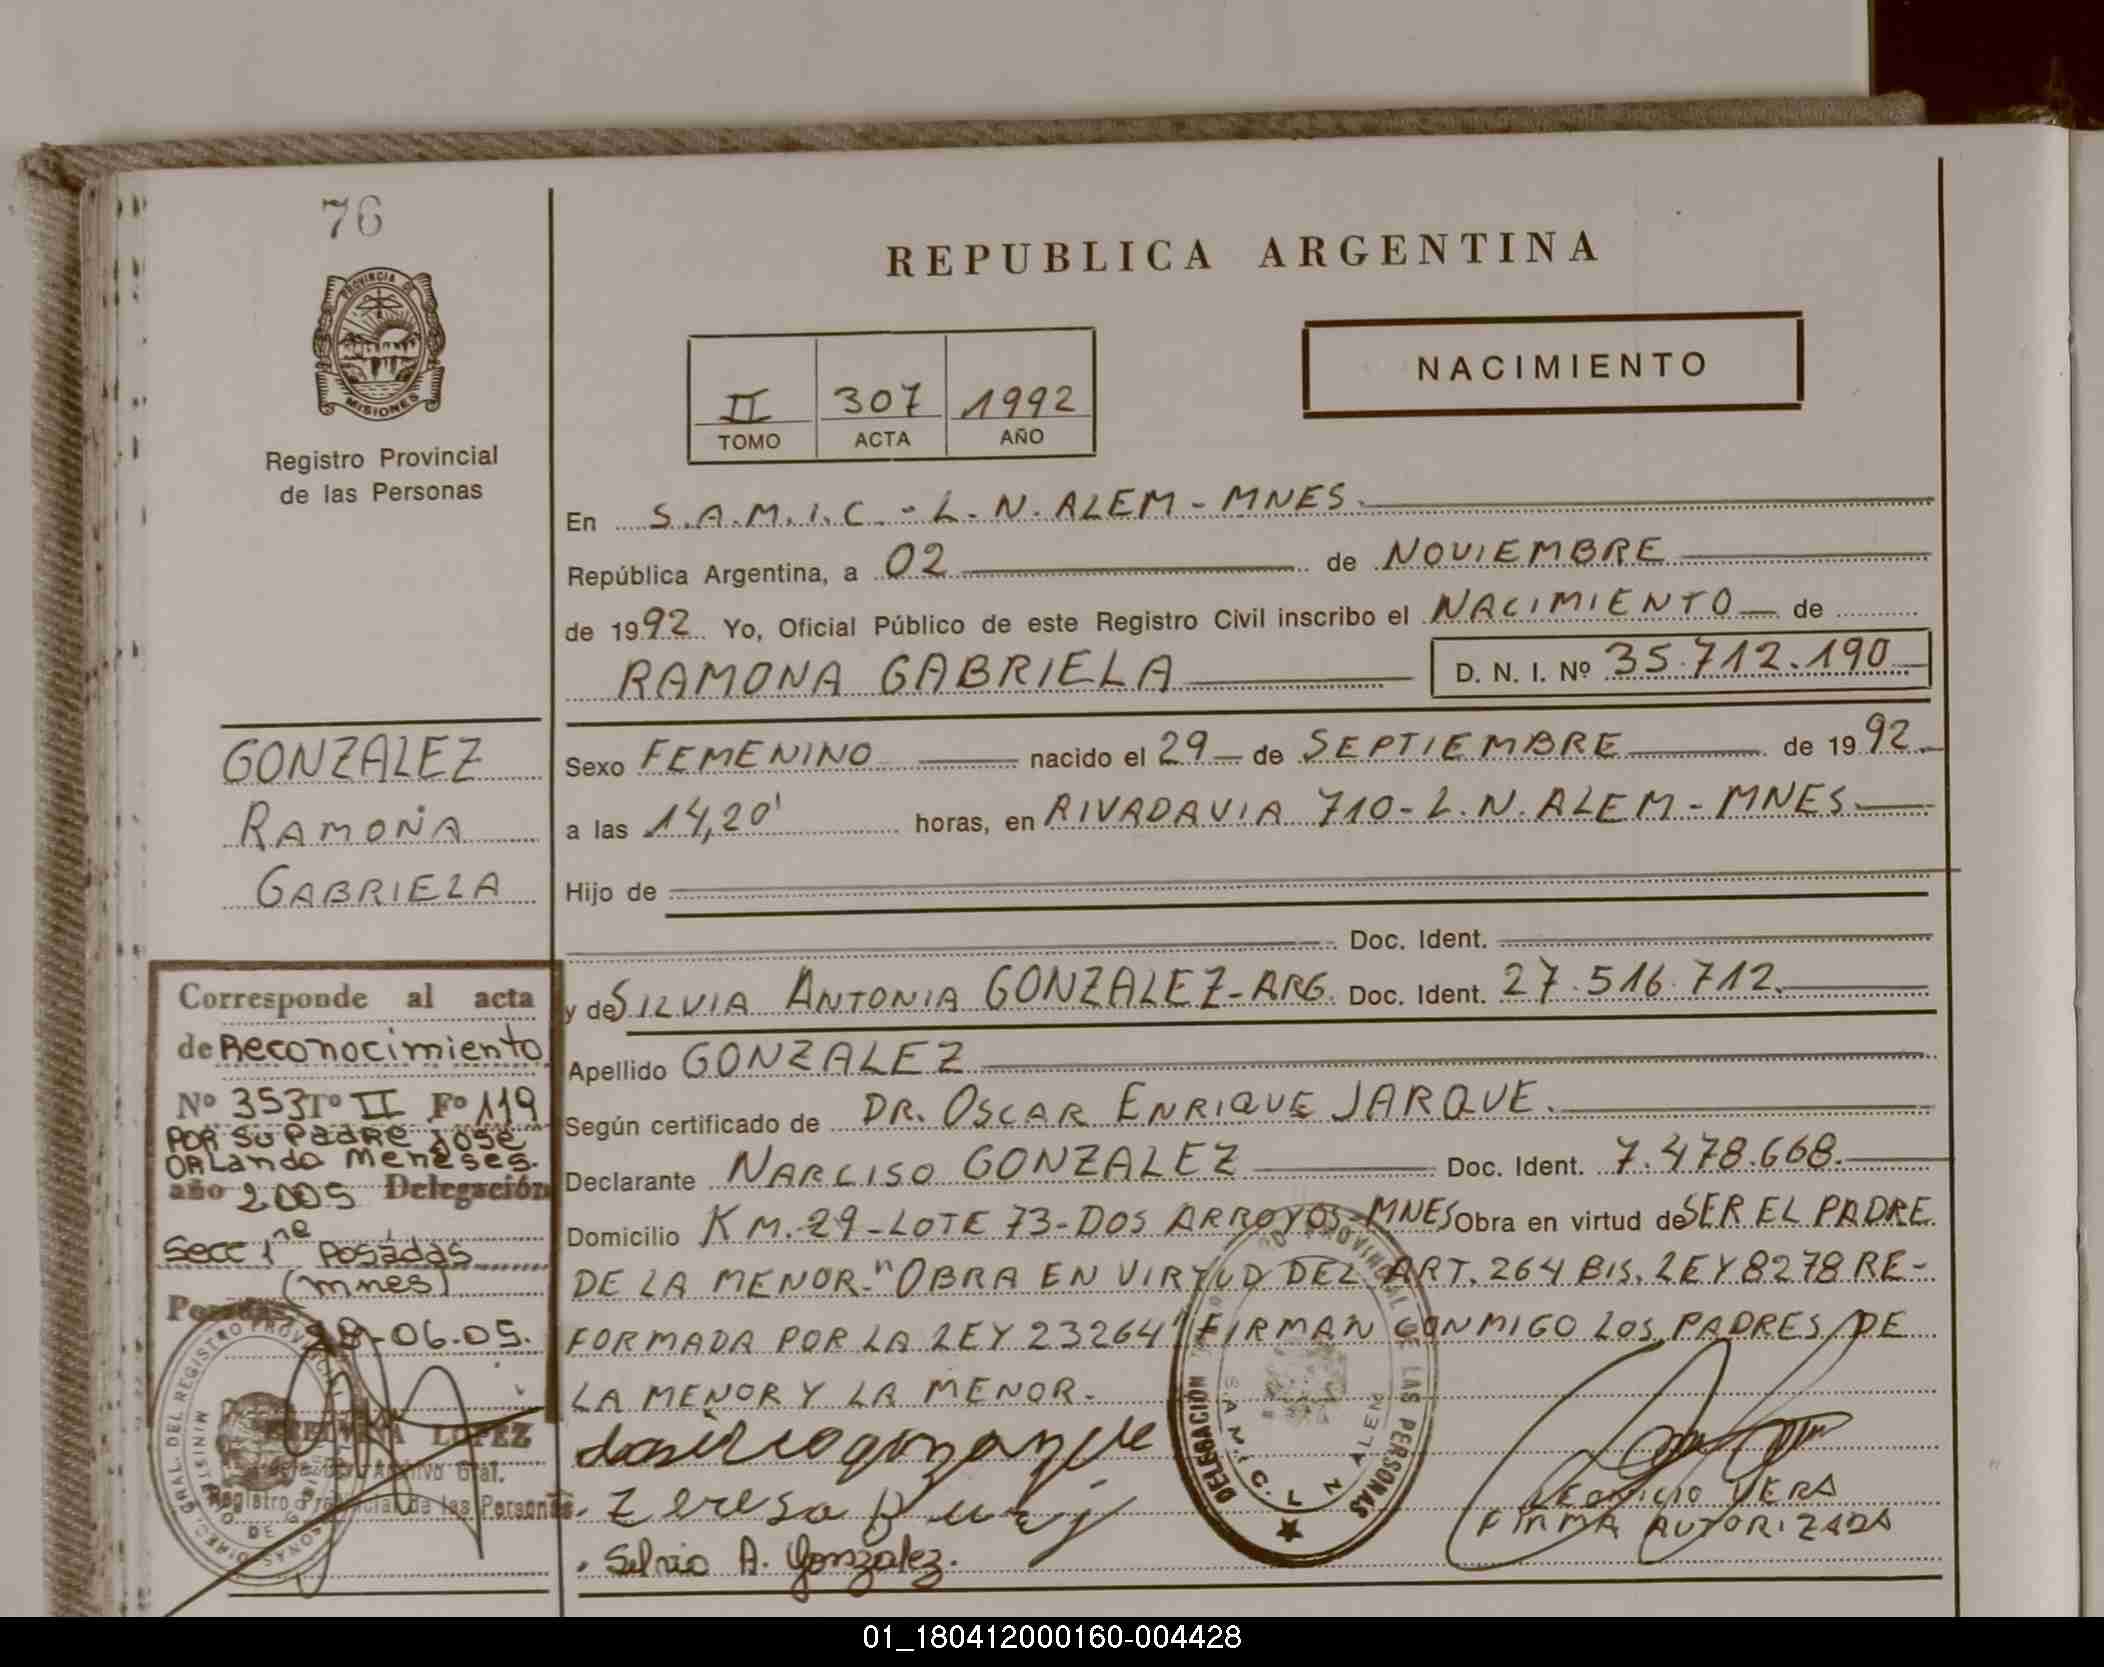 76
PROVINCIA DE
MISIONES
Registro Provincial
de las Personas
REPUBLICA ARGENTINA
II 307 1992
TOMO ACTA AÑO
NACIMIENTO
En S.A.M.I.C. - L.N. ALEM - MNES.
República Argentina, a 02 de NOVIEMBRE
de 1992 Yo, Oficial Público de este Registro Civil inscribo el NACIMIENTO de
RAMONA GABRIELA D. N. I. Nº 35.712.190
GONZALEZ
RAMONA
GABRIELA
Sexo FEMENINO nacido el 29 de SEPTIEMBRE de 1992
a las 14,20' horas, en RIVADAVIA 710 - L.N. ALEM - MNES
Hijo de
Doc. Ident.
y de SILVIA ANTONIA GONZALEZ - ARG. Doc. Ident. 27.516.712.
Apellido GONZALEZ
Según certificado de DR. OSCAR ENRIQUE JARQUE.
Declarante NARCISO GONZALEZ Doc. Ident. 7.478.668.
Domicilio KM. 29 - LOTE 73 - DOS ARROYOS - MNES Obra en virtud de SER EL PADRE
DE LA MENOR. "OBRA EN VIRTUD DEL ART. 264 BIS. LEY 8278 RE-
FORMADA POR LA LEY 23264" FIRMAN CONMIGO LOS PADRES DE
LA MENOR Y LA MENOR.
Silvia A. Gonzalez.
DELEGACIÓN PROVINCIAL DE LAS PERSONAS
S.A.M.I.C. L N ALEM
LEONICIO VERA
FIRMA AUTORIZADA
Corresponde al acta
de Reconocimiento
Nº 353 Tº II Fº 119
POR SU PADRE JOSE
ORLANDO MENESES.
año 2005 Delegación
Secc 1ra Posadas
(mnes)
Posadas 28-06-05.
LOPEZ
Archivo Gral.
Registro Provincial de las Personas
01_180412000160-004428